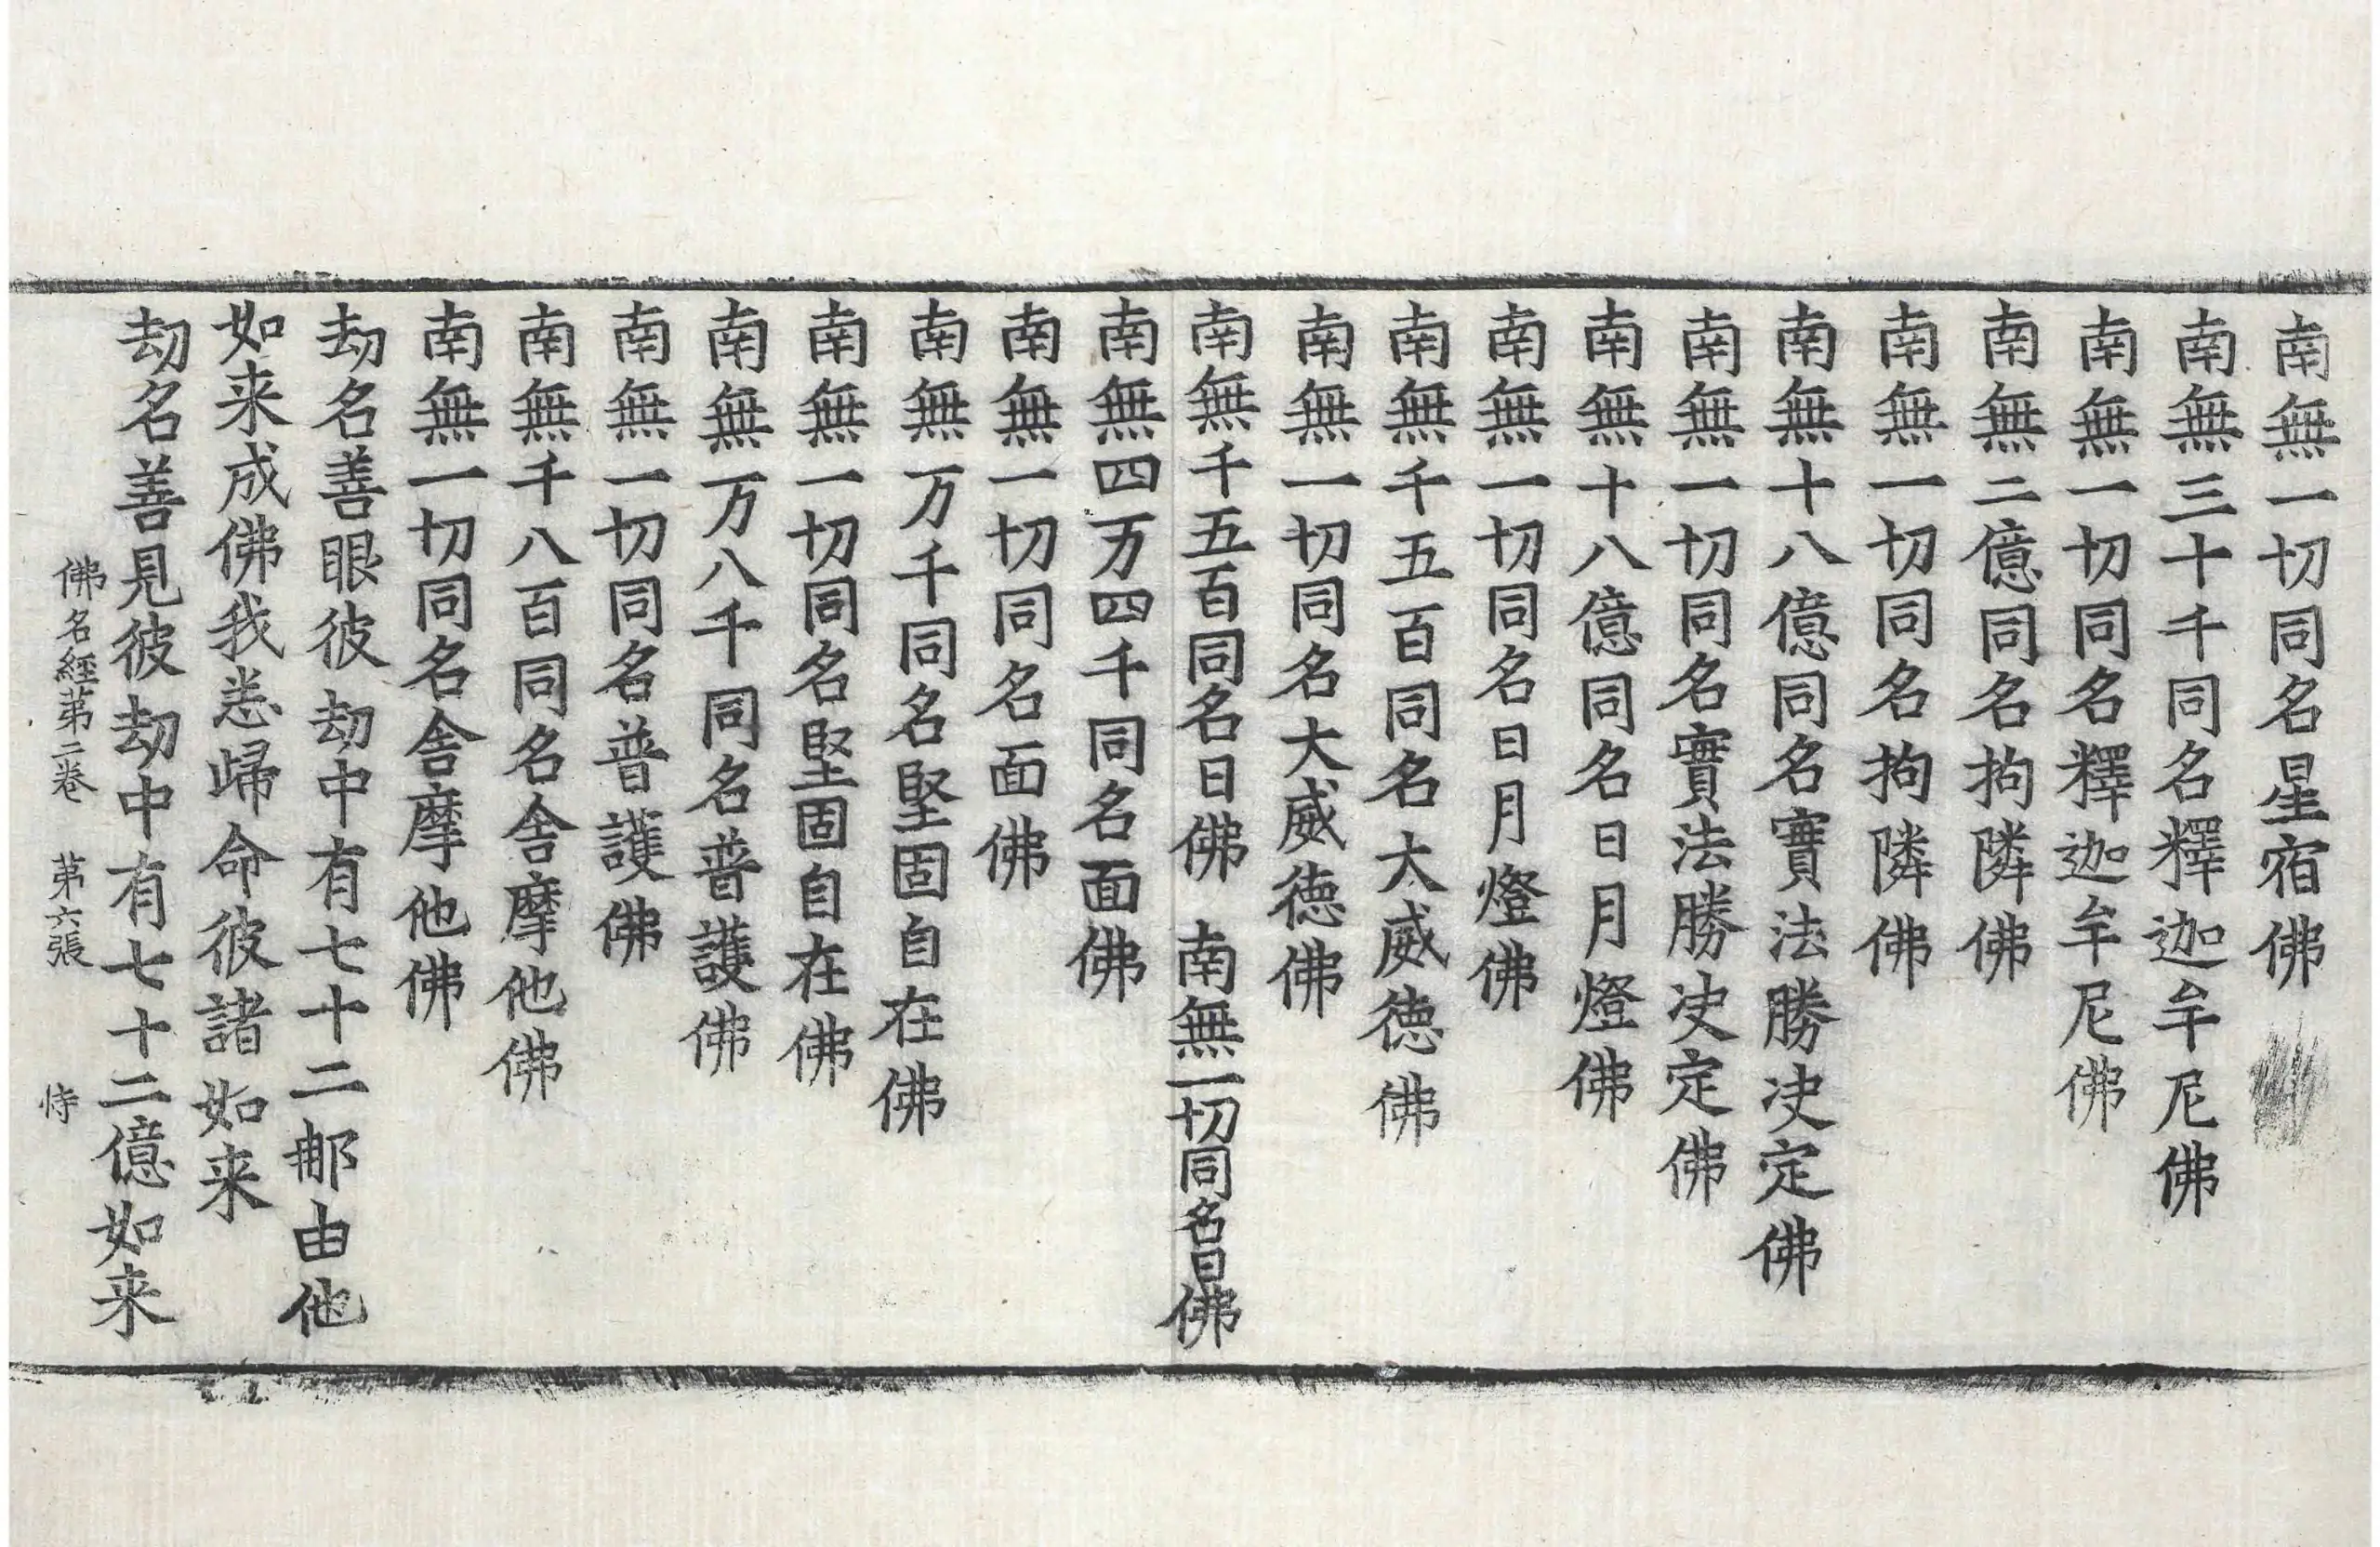 南無一切同名星宿佛
南無三十千同名釋迦牟尼佛
南無一切同名釋迦牟尼佛
南無二億同名拘隣佛
南無一切同名拘隣佛
南無十八億同名實法勝决定佛
南無一切同名實法勝决定佛
南無十八億同名日月燈佛
南無一切同名日月燈佛
南無千五百同名大威徳佛
南無一切同名大威徳佛
南無千五百同名日佛 南無一切同名日佛
南無四万四千同名面佛
南無一切同名面佛
南無万千同名堅固自在佛
南無一切同名堅固自在佛
南無万八千同名普護佛
南無一切同名普護佛
南無千八百同名舍摩他佛
南無一切同名舍摩他佛
劫名善眼彼劫中有七十二那由他
如来成佛我悉歸命彼諸如来
劫名善見彼劫中有七十二億如来
佛名經第二卷 第六張 恃